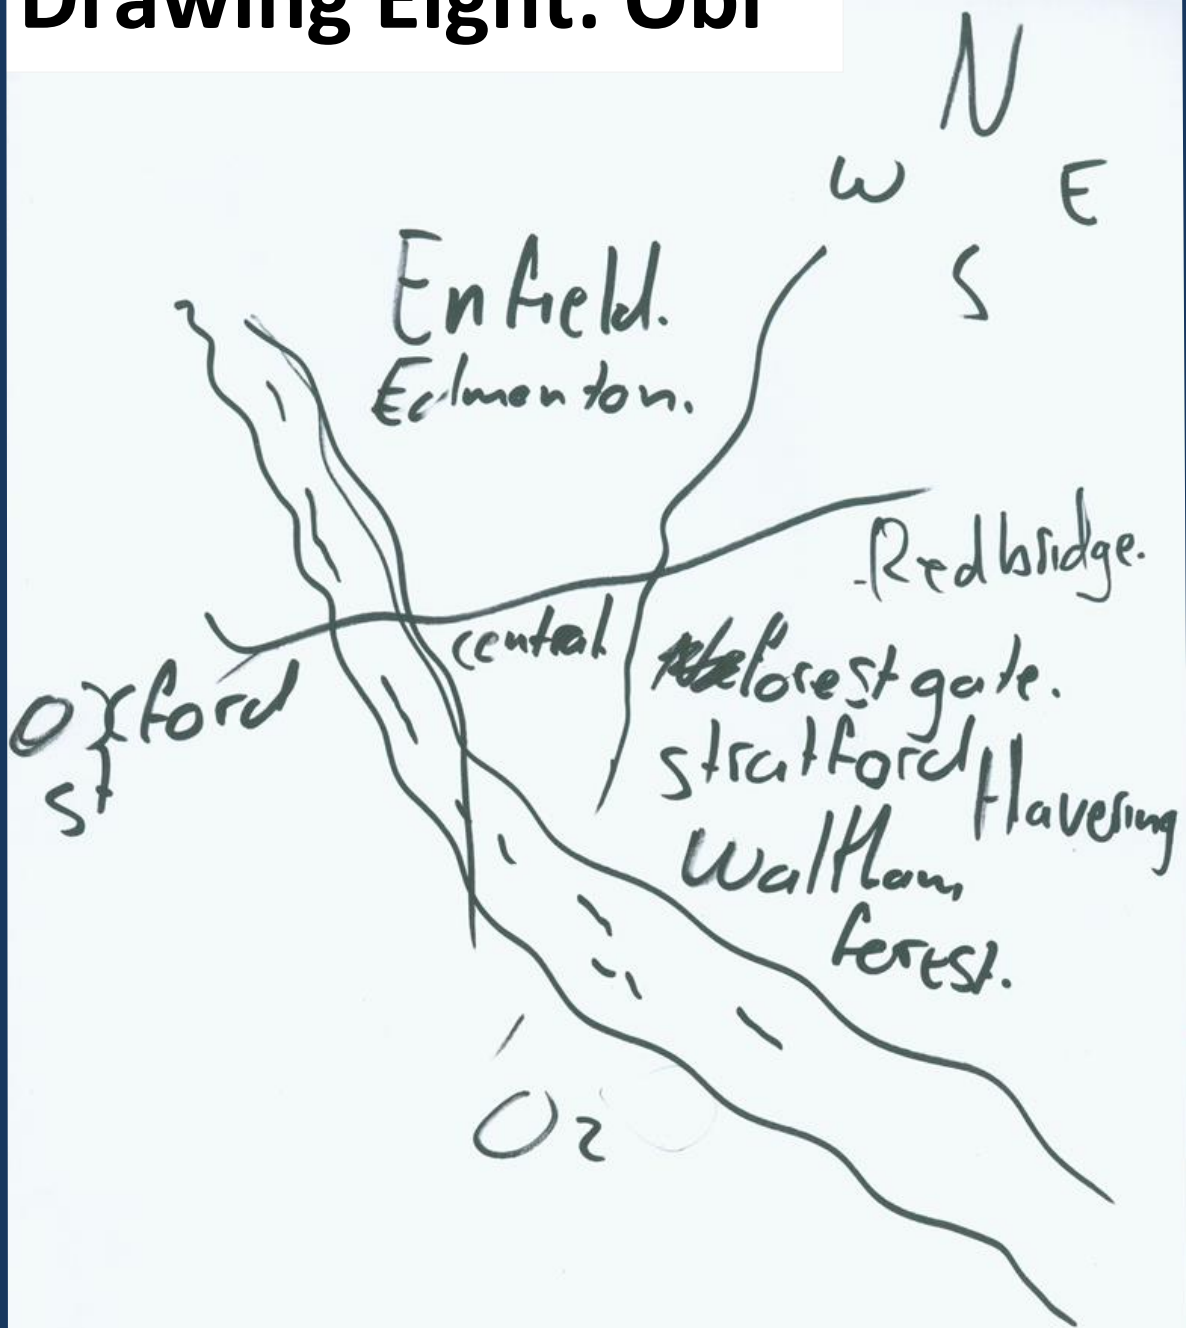 Drawing Eight: Obi
N
W E
S
Enfield.
Edmonton.
Redbridge.
central
forest gate.
Oxford
st
stratford
Havering
Waltham
forest.
O2